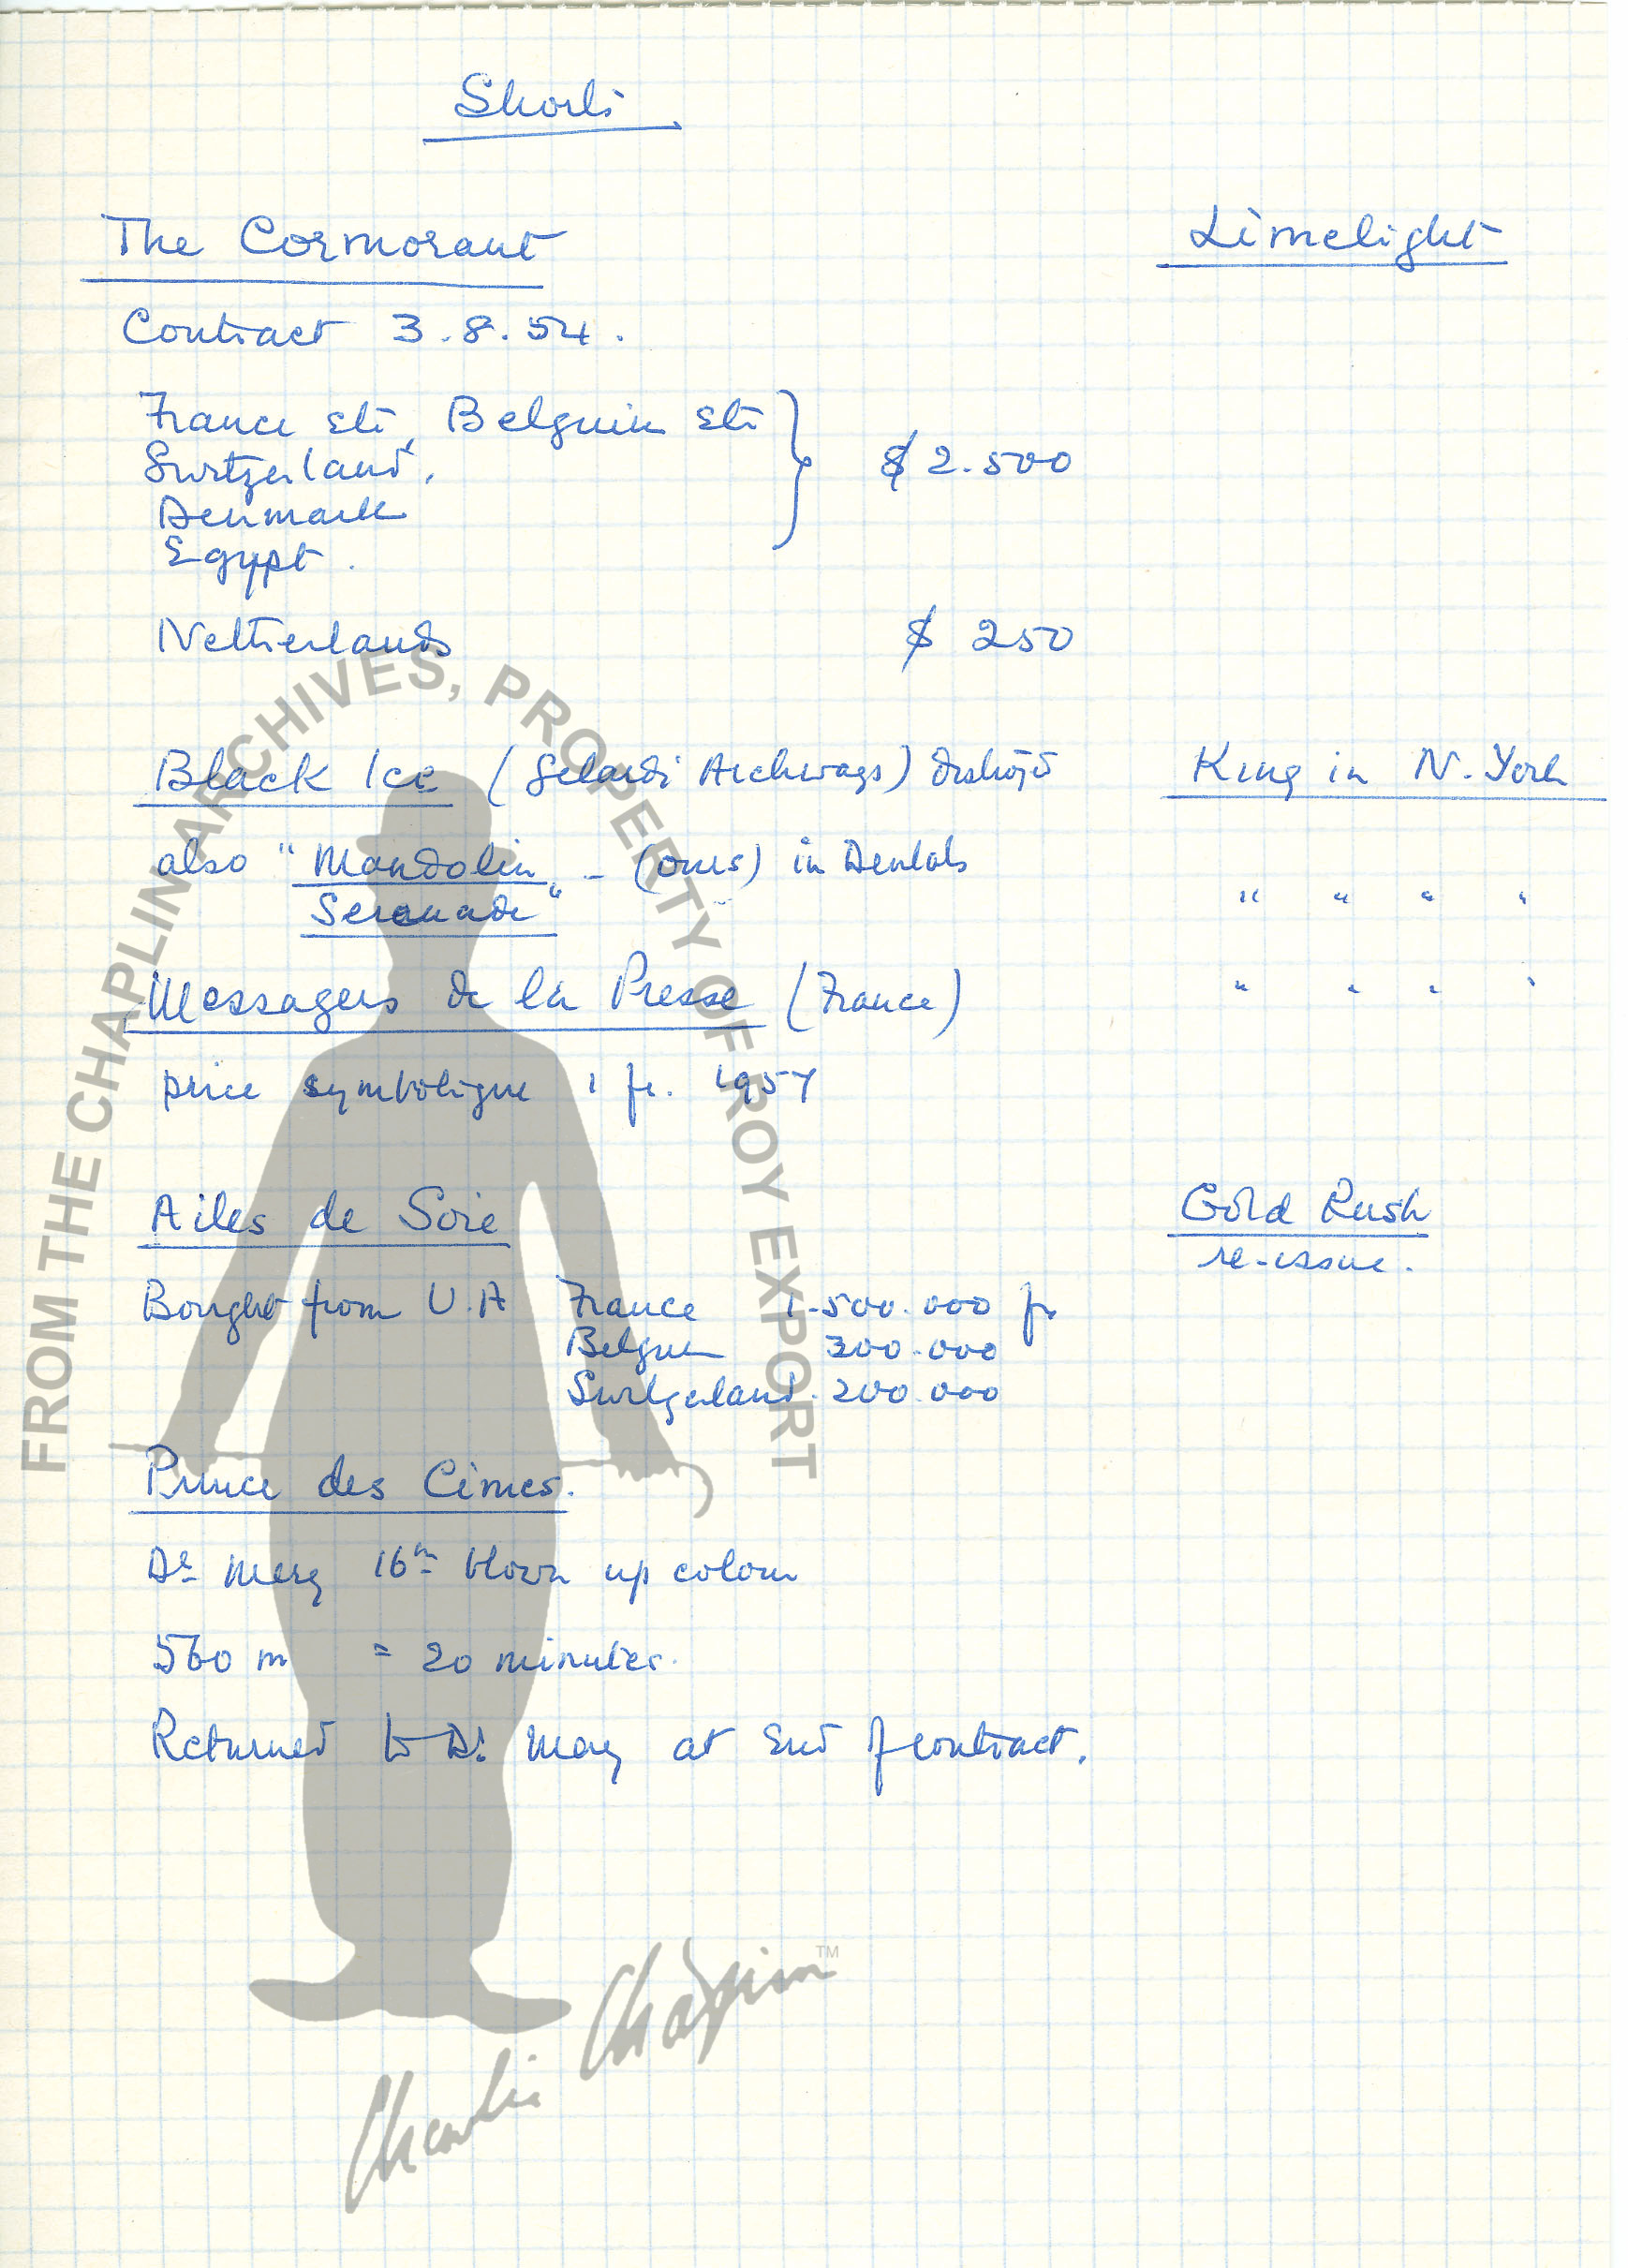 Shorts
The Cormorant Limelight
Contract 3.8.54.
France etc, Belguim etc
Switzerland,
Denmark
Egypt.
$ 2.500
Netherlands $ 250
Black Ice (Gelardi Archways) destroyed King in N. York
also "Mandolin - (ours) in Dentals
Serenade" " " " "
Messagers de la Presse (France) " " " "
price symbolique 1 fr. 1957
Ailes de Soie Gold Rush
re-issue.
Bought from U.A France 1.500.000 fr
Belguim 300.000
Switzerland. 200.000
Prince des Cimes.
Dr 16m blown up colour
560 m = 20 minutes.
Returned to Dr at end of contract.
FROM THE CHAPLIN ARCHIVES, PROPERTY OF ROY EXPORT
Charlie Chaplin TM